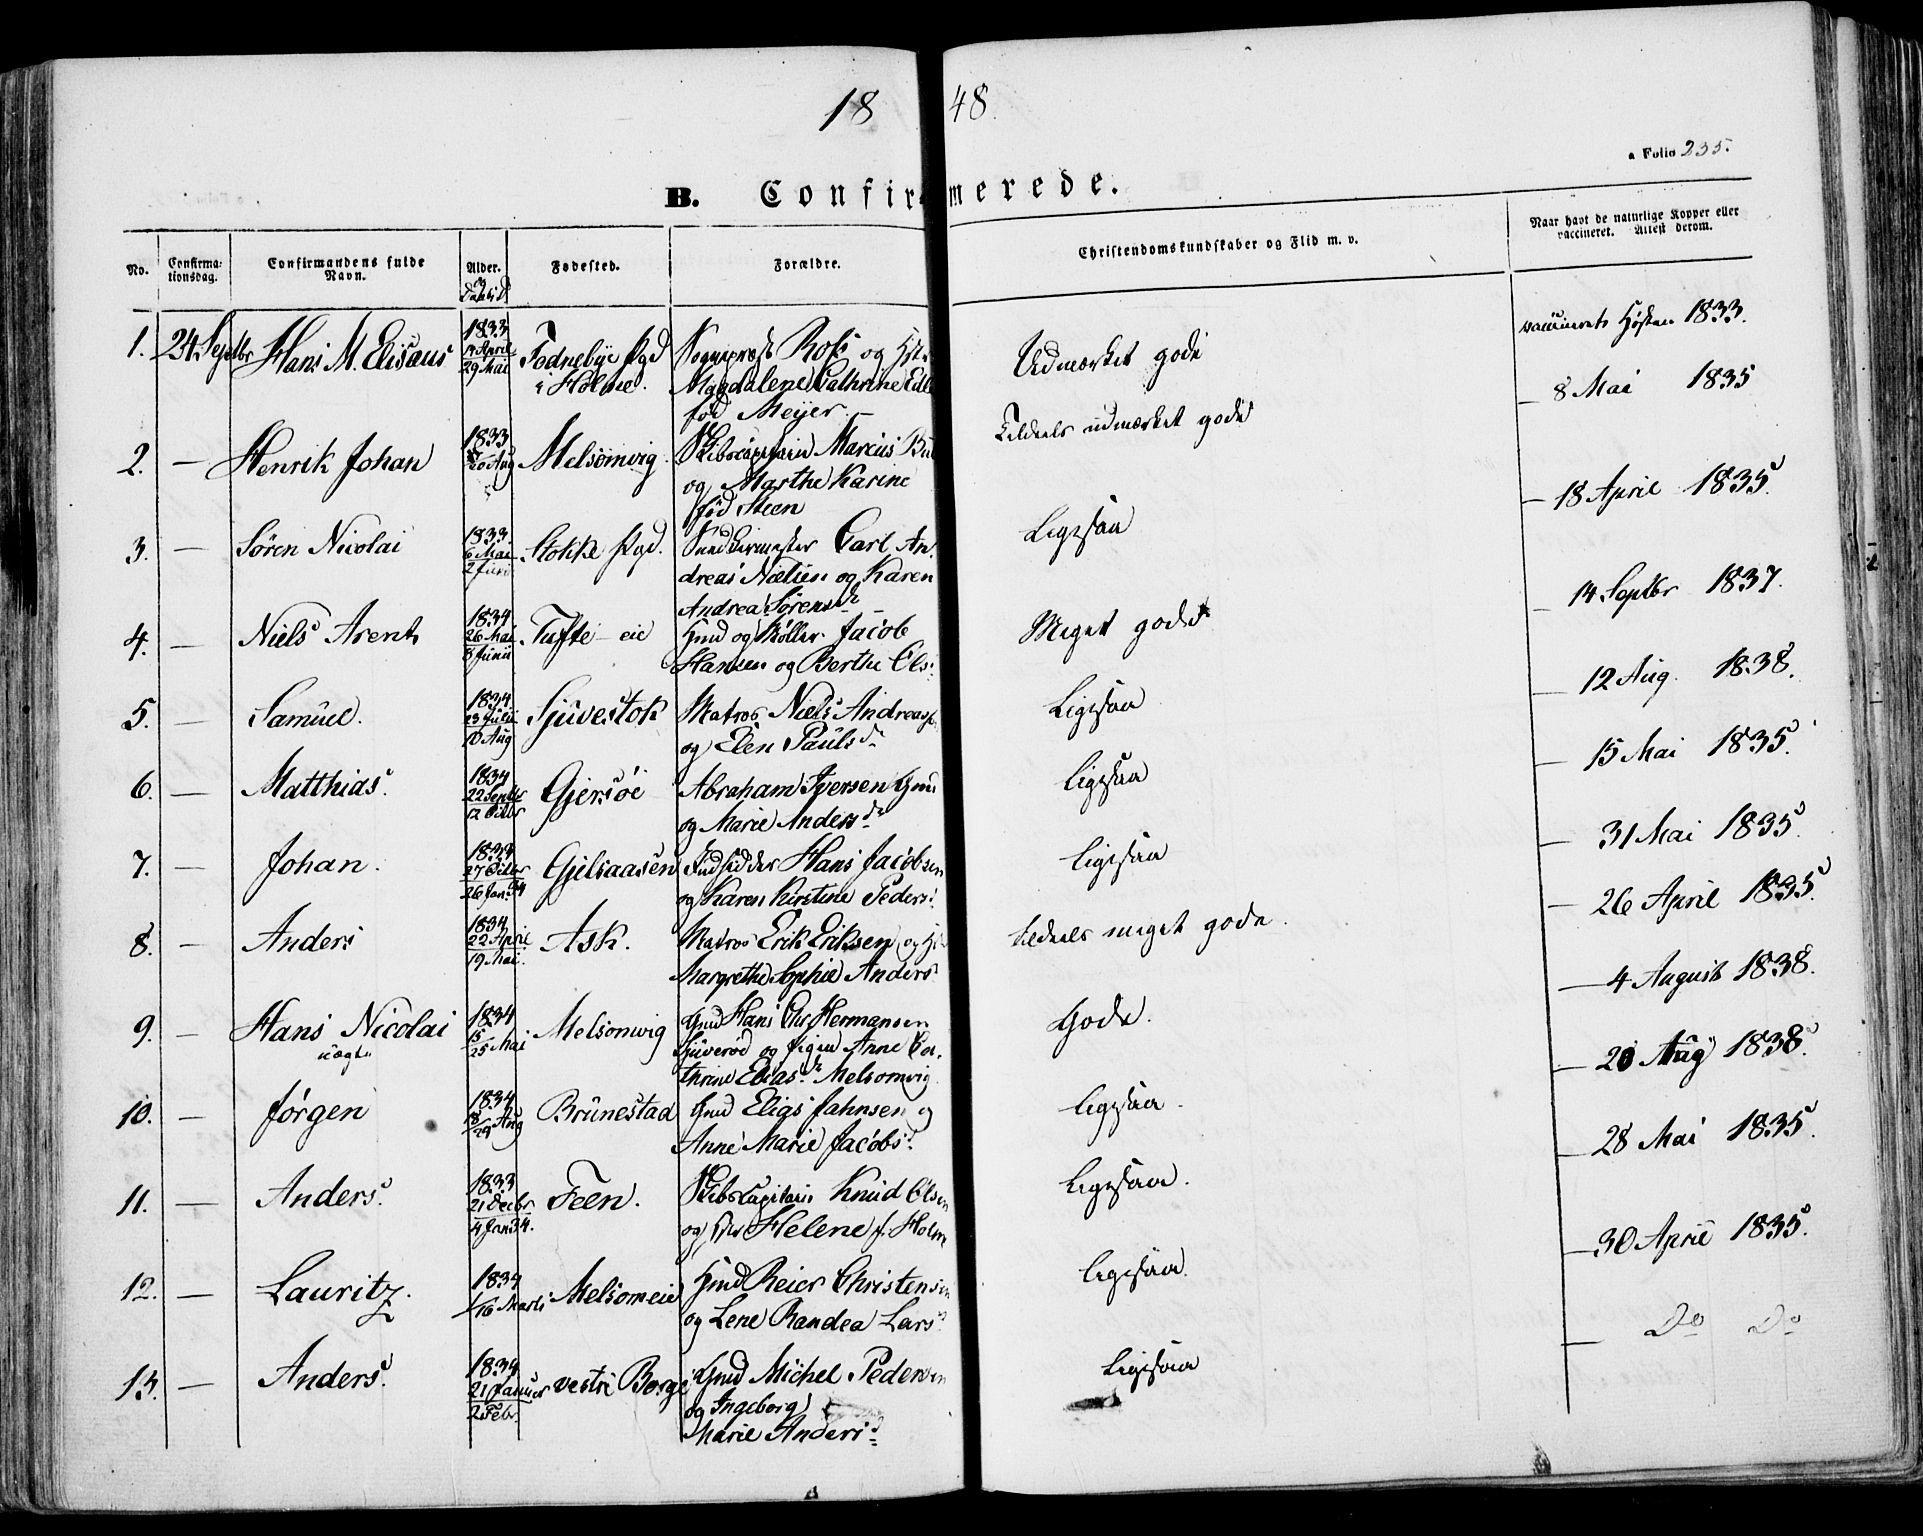 18 48.
a Folio 235.
B. Confirmerede.
No.
Confirma-
tionsdag.
Confirmandens fulde
Navn.
Alder.
og
Daabsd.
Fødested.
Forældre.
Christendomskundskaber og Flid m. v.
Naar havt de naturlige Kopper eller
vaccineret. Attest derom.
1. 24 Septbr Hans M. Elisæus
1833
14 April
29 Mai
Fodnebye Pgd
i Holme.
Sognepræst Rofs og Hst.
Magdalene Cathrine Edle
fød Meyer.
Udmærket gode
vaccineret Høsten 1833.
2. — Henrik Johan
1833
20 Aug
Melsomvig.
Skibscapitain Marcus Bu
og Marthe Karine
fød Steen
Tildeels udmærket gode
— 8 Mai 1835
3. — Søren Nicolai
1833.
6 Mai
2 Juni
Stokke Pgd.
Carl An-
dreas Nielsen og Karen
Andrea Sørensd
Ligesaa
— 18 April 1835.
4. — Niels Arent
1834
26 Mai
8 Junii
Tufte eie
Gmd og Møller Jacob
Hansen og Berthe Ols.
Meget gode
— 14 Septbr 1837.
5. — Samuel.
1834
23 Julii
10 Aug
Sjüvestok
Matros Niels Andreas
og Elen Paulsd.
Ligesaa
— 12 Aug. 1838.
6. — Matthias.
1834
22 Septbr
12 Octbr
Gjersøe
Abraham Iversen Gmd
og Marie Andersd.
Ligesaa
— 15 Mai 1835.
7. — Johan.
1833
27 Octbr
26 Jan. 34
Gjelsaasen
Indsidder Hans Jacobsen
og Karen Kirstine Peders.
Ligesaa
— 31 Mai 1835.
8. — Anders
1834
22 April
19 Mai.
Ask.
Matros Erik Eriksen og H
Margrethe Sophie Anders
Tildeels meget gode.
— 26 April 1835.
9. — Hans Nicolai
uægte
1834
15
25 Mai
Melsomvig
Gmd Hans Chr. Hermansen
Sjüverød og Pigen Anne Ca-
thrine Eliasd. Melsomvig
Gode.
— 4 August 1838.
10. — Jørgen
1834
18
29 Aug
Brünestad
Gmd Elias Jahnsen og
Anne Marie Jacobs.
Ligesaa.
— 20 Aug 1838.
11. — Anders.
1833
21 Decbr
4 Jan 34.
Feen.
Skibscapitain Knud Olsen
og Helene f. Holm
Ligesaa.
— 28 Mai 1835.
12. — Lauritz.
1834
1/16 Marts
Melsomeie
Gmd Reier Christensen
og Lene Randea Lars
Ligesaa.
— 30 April 1835.
13. — Anders.
1834
21 Januar
2 Febr.
vestre Borge
Gmd Michel Pedersen
og Ingeborg
Marie Andersd
Ligesaa
— Do Do